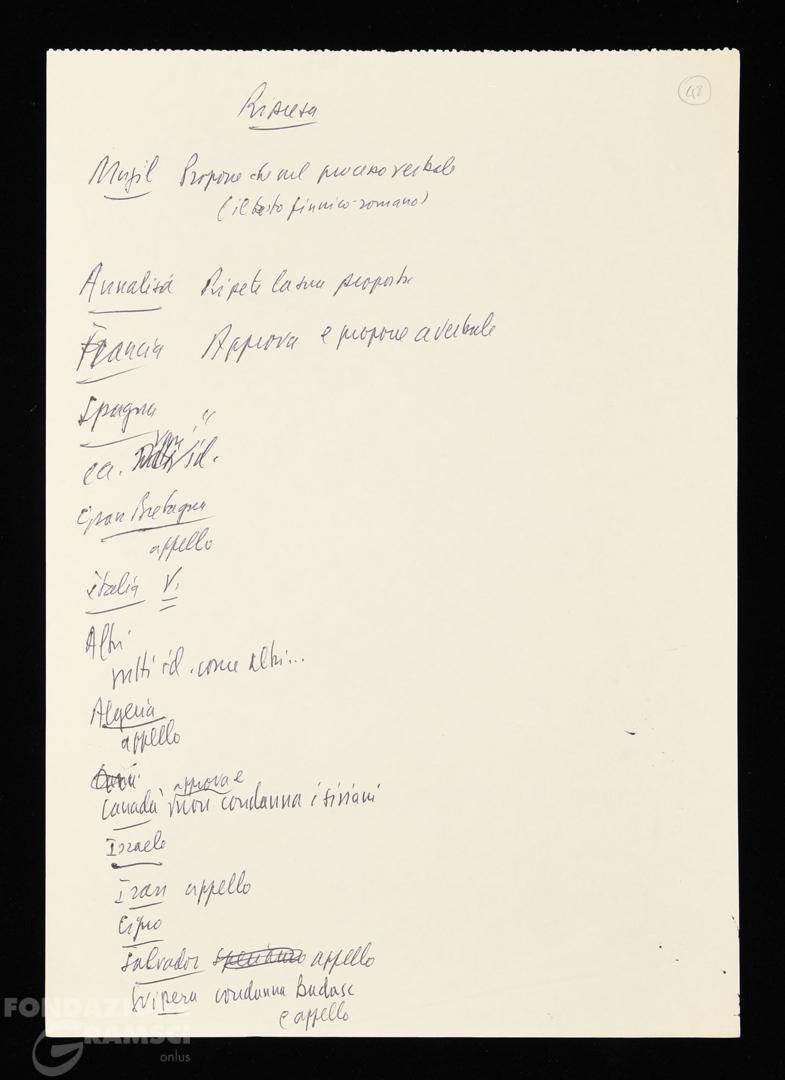 48
Ripresa
Propone che nel processo verbale
(il testo finnico-romano)
Annalisa Ripete la sua proposta
Francia Approva e propone a verbale
Spagna "
id.
Gran Bretagna
appello
Italia V.
Altri
tutti id. come altri...
Algeria
appello
approva e
Canadà non condanna i siriani
Israele
Iran appello
Cipro
Salvador appello
condanna
e appello
FONDAZIONE
GRAMSCI
onlus